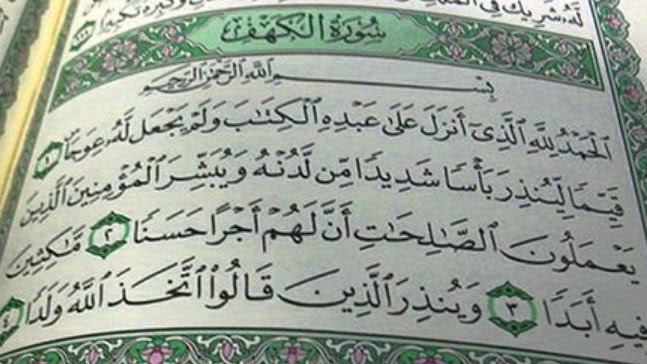 لَّهُۥ شَرِيكٌ فِى ٱلْمُلْكِ
وَكَبِّرْهُ تَكْبِيرًا ١١١
سُورَةُ الْكَهْفِ
بِسْمِ ٱللَّهِ ٱلرَّحْمَٰنِ ٱلرَّحِيمِ
ٱلْحَمْدُ لِلَّهِ ٱلَّذِىٓ أَنزَلَ عَلَىٰ عَبْدِهِ ٱلْكِتَٰبَ وَلَمْ يَجْعَل لَّهُۥ عِوَجَا ١
قَيِّمًا لِّيُنذِرَ بَأْسًا شَدِيدًا مِّن لَّدُنْهُ وَيُبَشِّرَ ٱلْمُؤْمِنِينَ ٱلَّذِينَ
يَعْمَلُونَ ٱلصَّٰلِحَٰتِ أَنَّ لَهُمْ أَجْرًا حَسَنًا ٢ مَّٰكِثِينَ
فِيهِ أَبَدًا ٣ وَيُنذِرَ ٱلَّذِينَ قَالُوا۟ ٱتَّخَذَ ٱللَّهُ وَلَدًا ٤